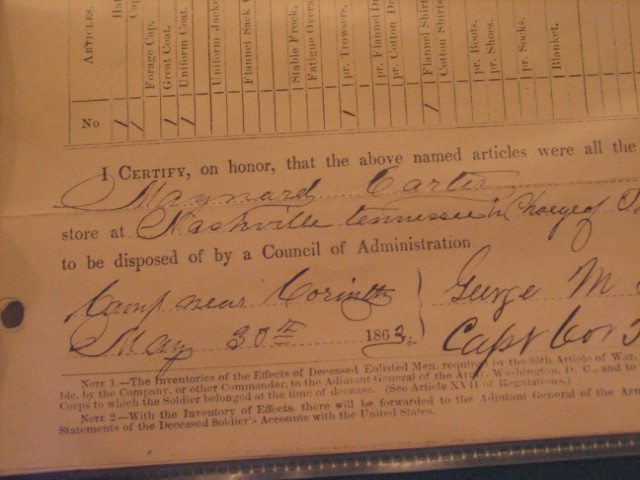 ARTICLES.
Hat
Cap
Forage Cap.
Great Coat.
Uniform Coat.
Uniform Jacke
Flannel Sack C
Stable Frock.
Fatigue Overa
pr. Trowsers.
pr. Flannel Dr
pr. Cotton Dr
Flannel Shirts
Cotton Shirts
pr. Boots.
pr. Shoes.
pr. Socks.
Blanket.
No / / / / / /
I CERTIFY, on honor, that the above named articles were all the
Maynard Carter
store at Nashville tennessee in Charge of
to be disposed of by a Council of Administration
Camp near Corinth George M
May 30th 1862. Capt Co
NOTE 1.—The Inventories of the Effects of Deceased Enlisted Men, required by the 95th Article of War,
ble, by the Company, or other Commander, to the Adjutant General of the Army, Washington, D. C., and to
Corps to which the Soldier belonged at the time of decease. (See Article XVII of Regulations.)
NOTE 2—With the Inventory of Effects, there will be forwarded to the Adjutant General of the Arm
Statements of the Deceased Soldier's Accounts with the United States.